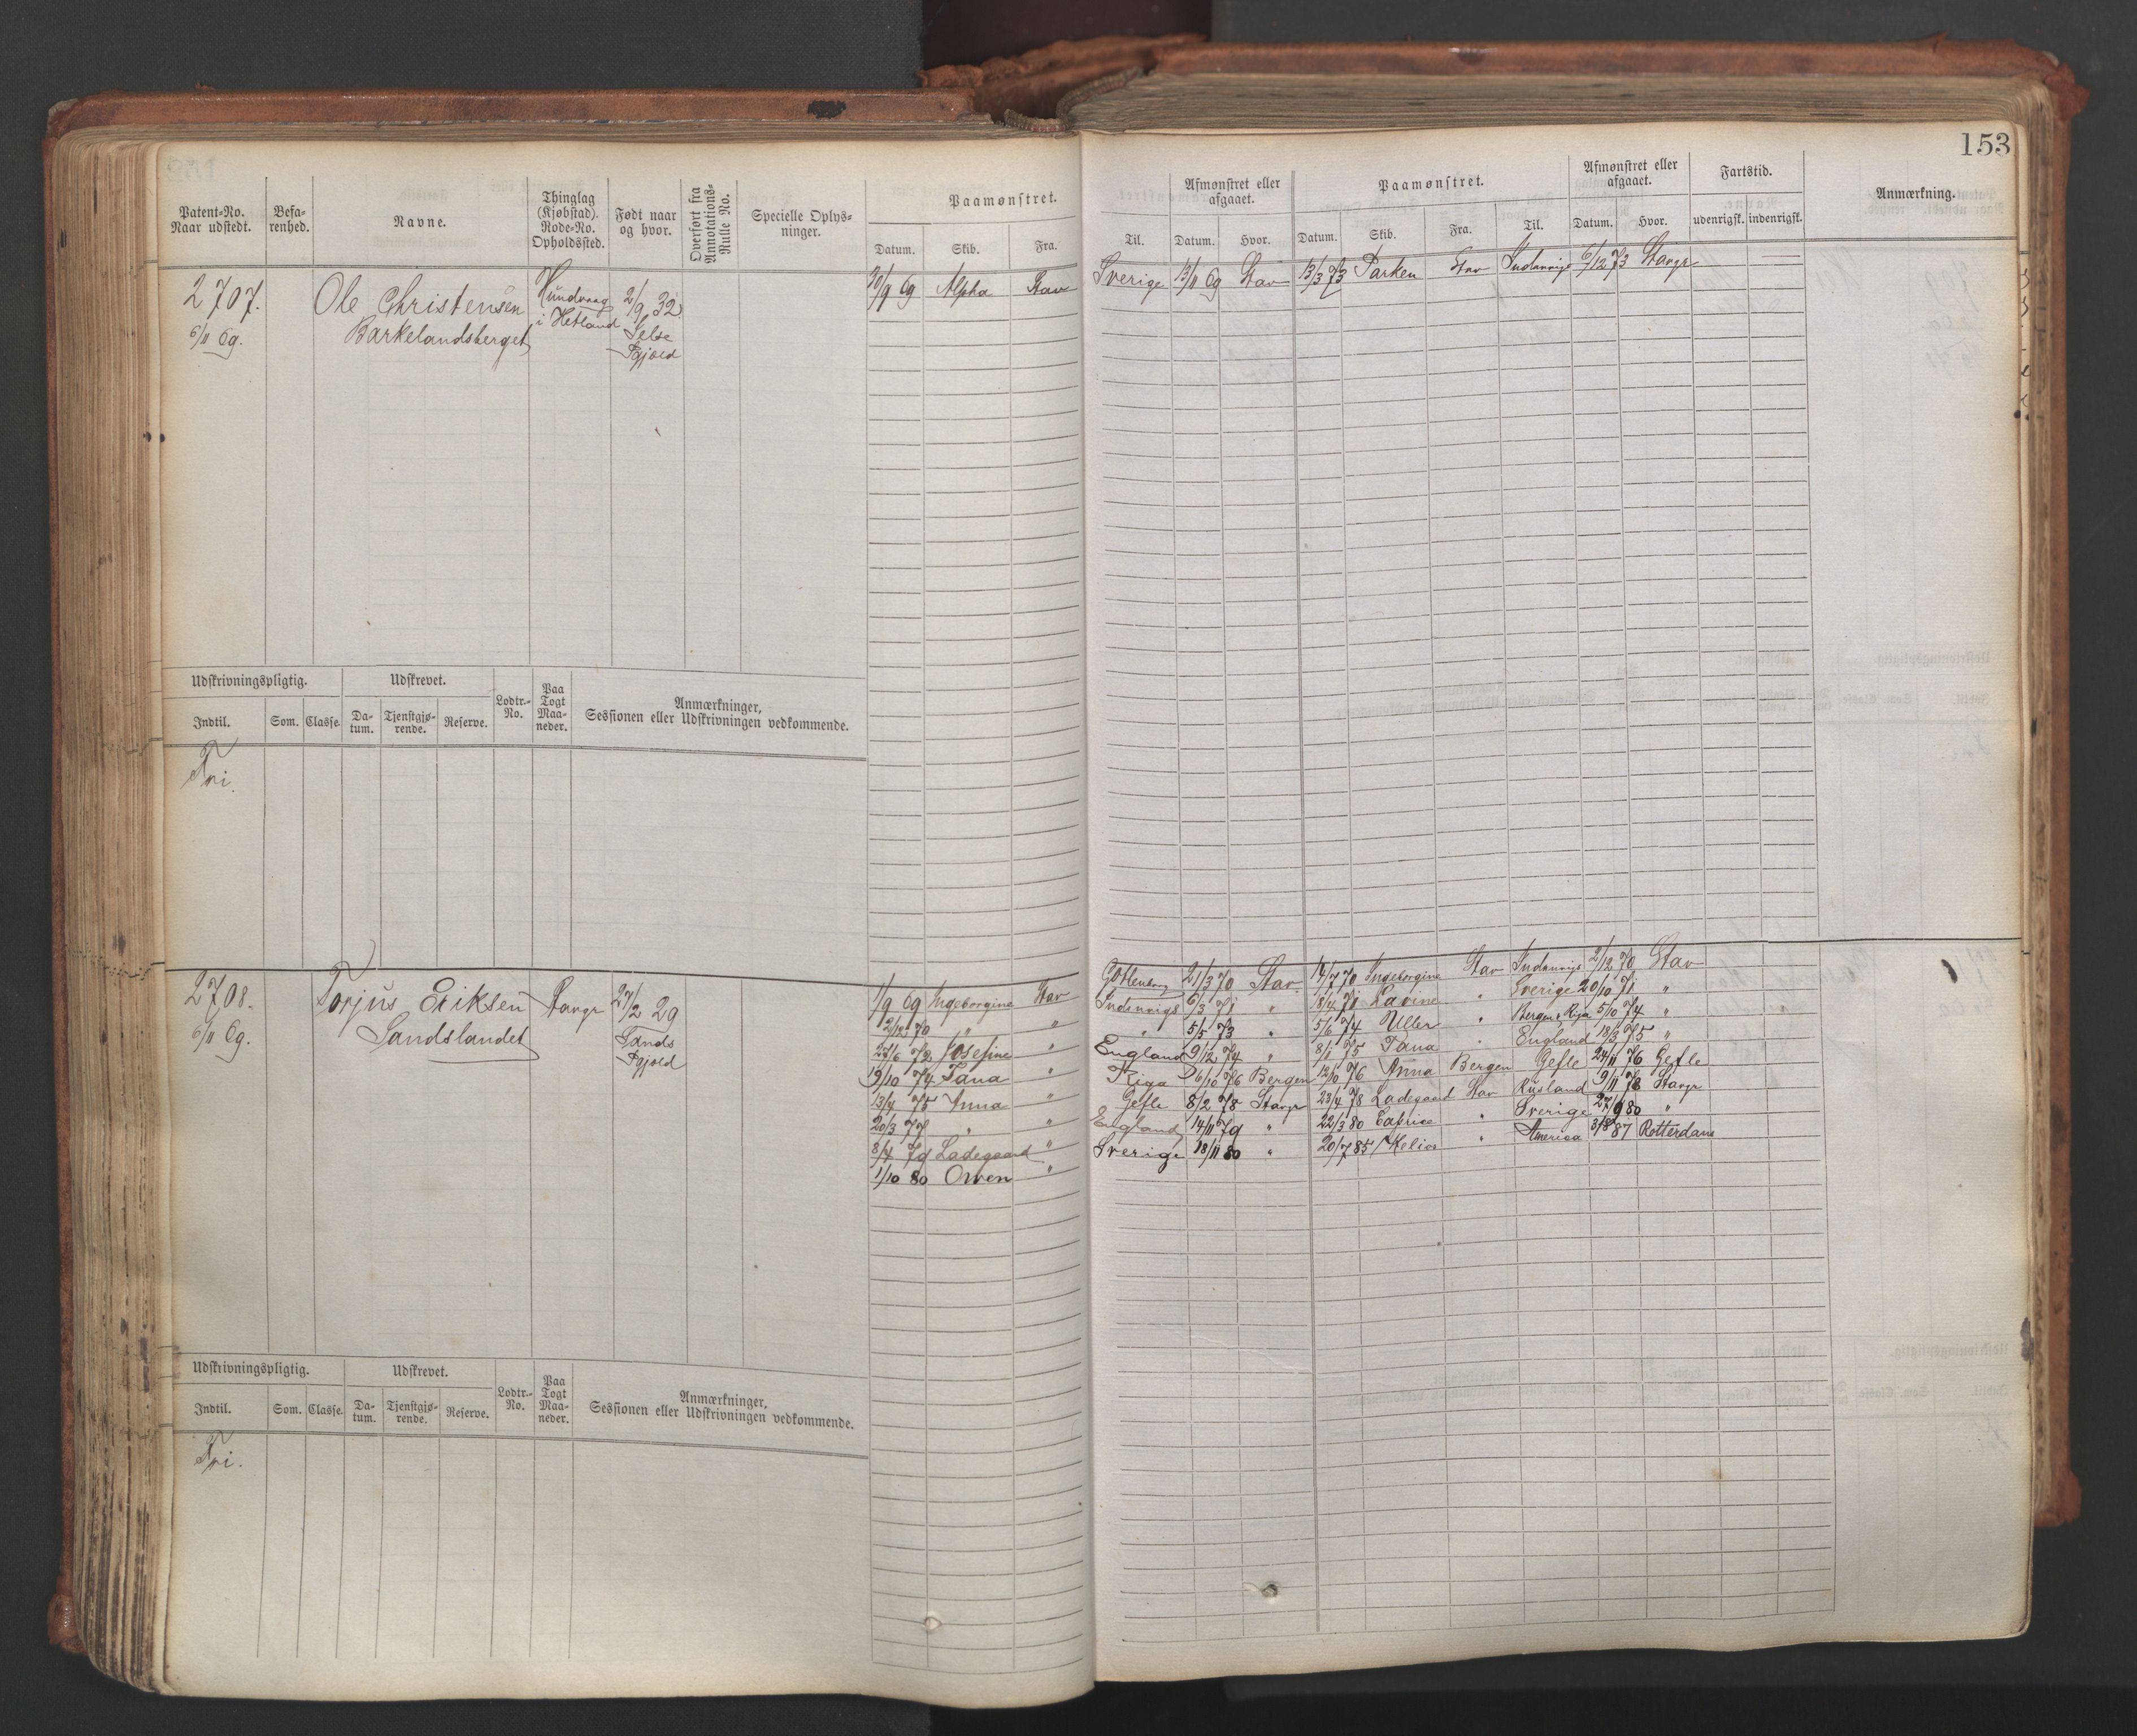 153
Patent-No.
Naar udstedt.
Befa-
renhed.
Navne.
Thinglag
(Kjøbstad).
Rode-No.
Opholdssted.
Født naar
og hvor.
Overført fra
Annotations-
Rulle No.
Specielle Oplys-
ninger.
Paamønstret.
Datum. Skib. Fra.
Til.
Afmønstret eller
afgaaet.
Datum. Hvor.
Paamønstret.
Datum. Skib. Fra. Til.
Afmønstret eller
afgaaet.
Datum. Hvor.
Fartstid.
udenrigsk. indenrigsk.
Anmærkning.
2707.
6/11 69.
Ole Christensen
Barkelandsberget
Hundvaag
i Hetland
2/9 32
Selse
Sgjæld
30/9 69 Alpha Stav
Sverige 13/11 69 Stav 13/3 73 Parken Stav Indenrigs 6/12 73 Stavgr
Udskrivningspligtig.
Udskrevet.
Lodtr.-
No.
Paa
Togt
Maa-
neder.
Anmærkninger,
Sessionen eller Udskrivningen vedkommende.
Indtil. Som. Classe.
Da-
tum.
Tjenstgjø-
rende.
Reserve.
Fri.
2708.
6/11 69.
Torjus Eriksen
Sandslandet
Stavgr
27/2 29
Sands
Sgjæld
1/9 69 Ingeborgine Stav
2/12 70 " "
27/6 72 Josefine "
19/10 74 Tana "
13/4 75 Anna "
20/3 77 " "
8/4 79 Ladegaard "
1/10 80 Owen "
Gottenborg 21/3 70 Stav 14/7 70 Ingeborgine Stav Indenrigs 2/12 70 Stav
Indenrigs 6/3 71 " 18/4 71 Lavine " Sverige 20/10 71 "
" 5/5 73 " 5/6 74 Uller " Bergen & Riga 5/10 74 "
England 9/12 74 " 8/1 75 Tana " England 18/3 75 "
Riga 26/10 76 Bergen 12/10 76 Anna Bergen Gefle 24/11 76 Gefle
Gefle 8/2 78 Stavgr 23/4 78 Ladegaard Stav Rusland 9/11 78 Stavgr
England 14/11 79 " 22/3 80 Caprice " Sverige 27/9 80 "
Sverige 18/11 80 " 20/7 85 Helios " America 31/8 87 Rotterdam
Udskrivningspligtig.
Udskrevet.
Lodtr.-
No.
Paa
Togt
Maa-
neder.
Anmærkninger,
Sessionen eller Udskrivningen vedkommende.
Indtil. Som. Classe.
Da-
tum.
Tjenstgjø-
rende.
Reserve.
Fri.